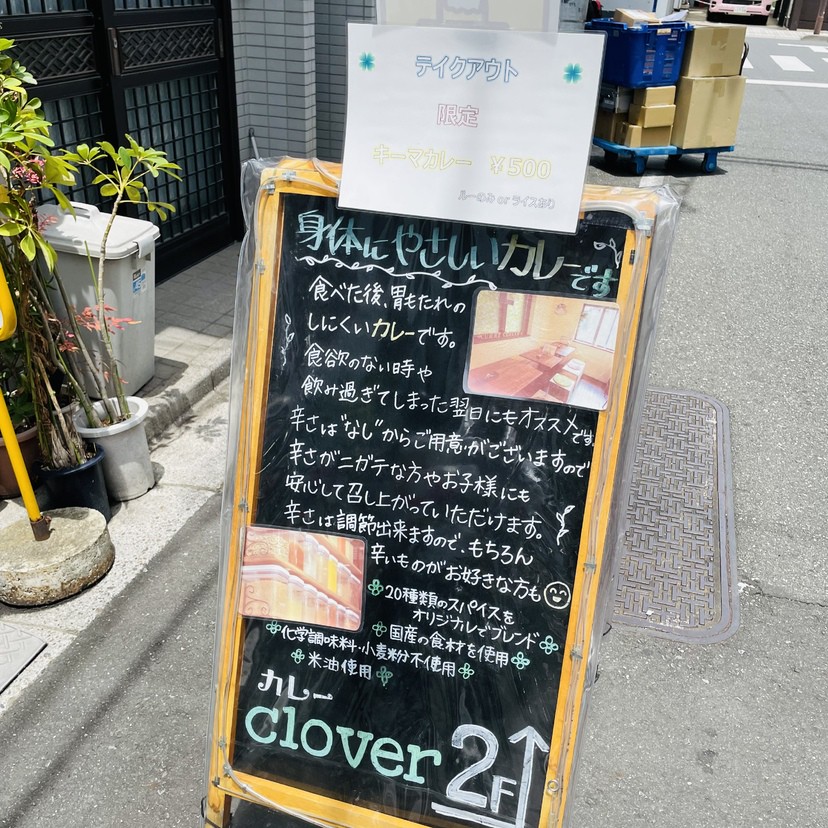 テイクアウト
限定
キーマカレー ￥500
ルーのみ or ライスあり
身体にやさしいカレーです
食べた後、胃もたれの
しにくいカレーです。
食欲のない時や
飲み過ぎてしまった翌日にもオススメです。
辛さは"なし"からご用意がございますので
辛さがニガテな方やお子様にも
安心して召し上がっていただけます。
辛さは調節出来ますので、もちろん
辛いものがお好きな方も
20種類のスパイスを
オリジナルでブレンド
化学調味料・小麦粉不使用
国産の食材を使用
米油使用
カレー
clover
2F